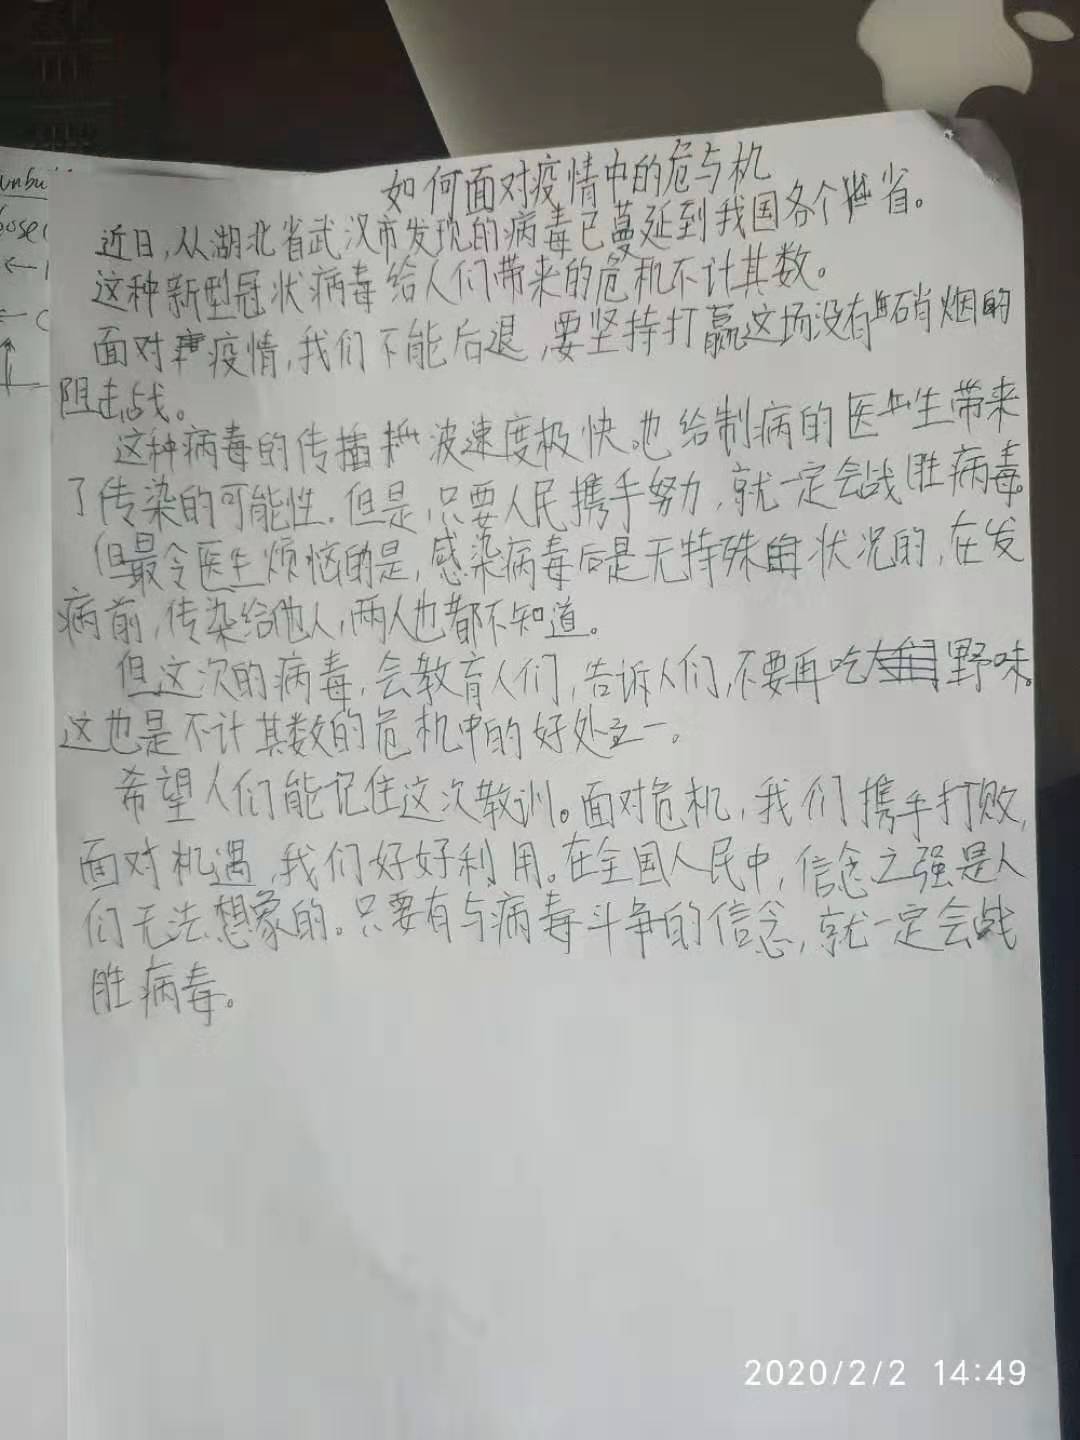 如何面对疫情中的危与机
近日,从湖北省武汉市发现的病毒已蔓延到我国各个省。
这种新型冠状病毒给人们带来的危机不计其数。
面对疫情,我们不能后退,要坚持打赢这场没有硝烟的
阻击战。
这种病毒的传播速度极快。也给制病的医生带来
了传染的可能性。但是,只要人民携手努力,就一定会战胜病毒。
但最令医生烦恼的是,感染病毒后是无特殊状况的,在发
病前,传染给他人,两人也都不知道。
但这次的病毒,会教育人们,告诉人们,不要再吃野味。
这也是不计其数的危机中的好处之一。
希望人们能记住这次教训。面对危机,我们携手打败,
面对机遇,我们好好利用。在全国人民中,信念之强是人
们无法想象的。只要有与病毒斗争的信念,就一定会战
胜病毒。
2020/2/2 14:49